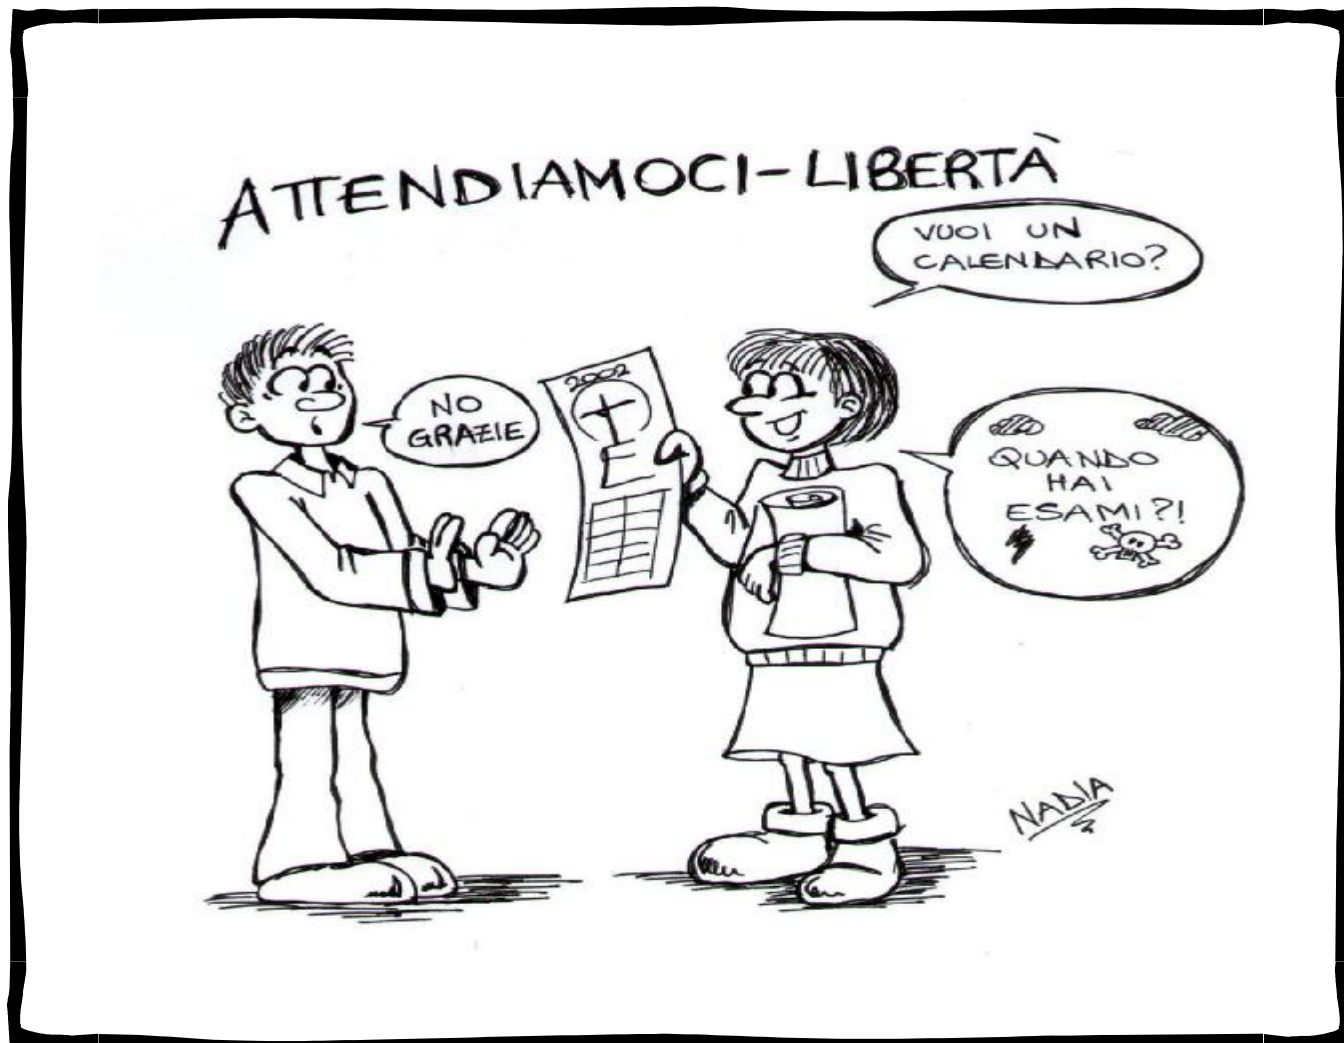 ATTENDIAMOCI-LIBERTÀ
VUOI UN
CALENDARIO?
NO
GRAZIE
2002
QUANDO
HAI
ESAMI?!
NADIA